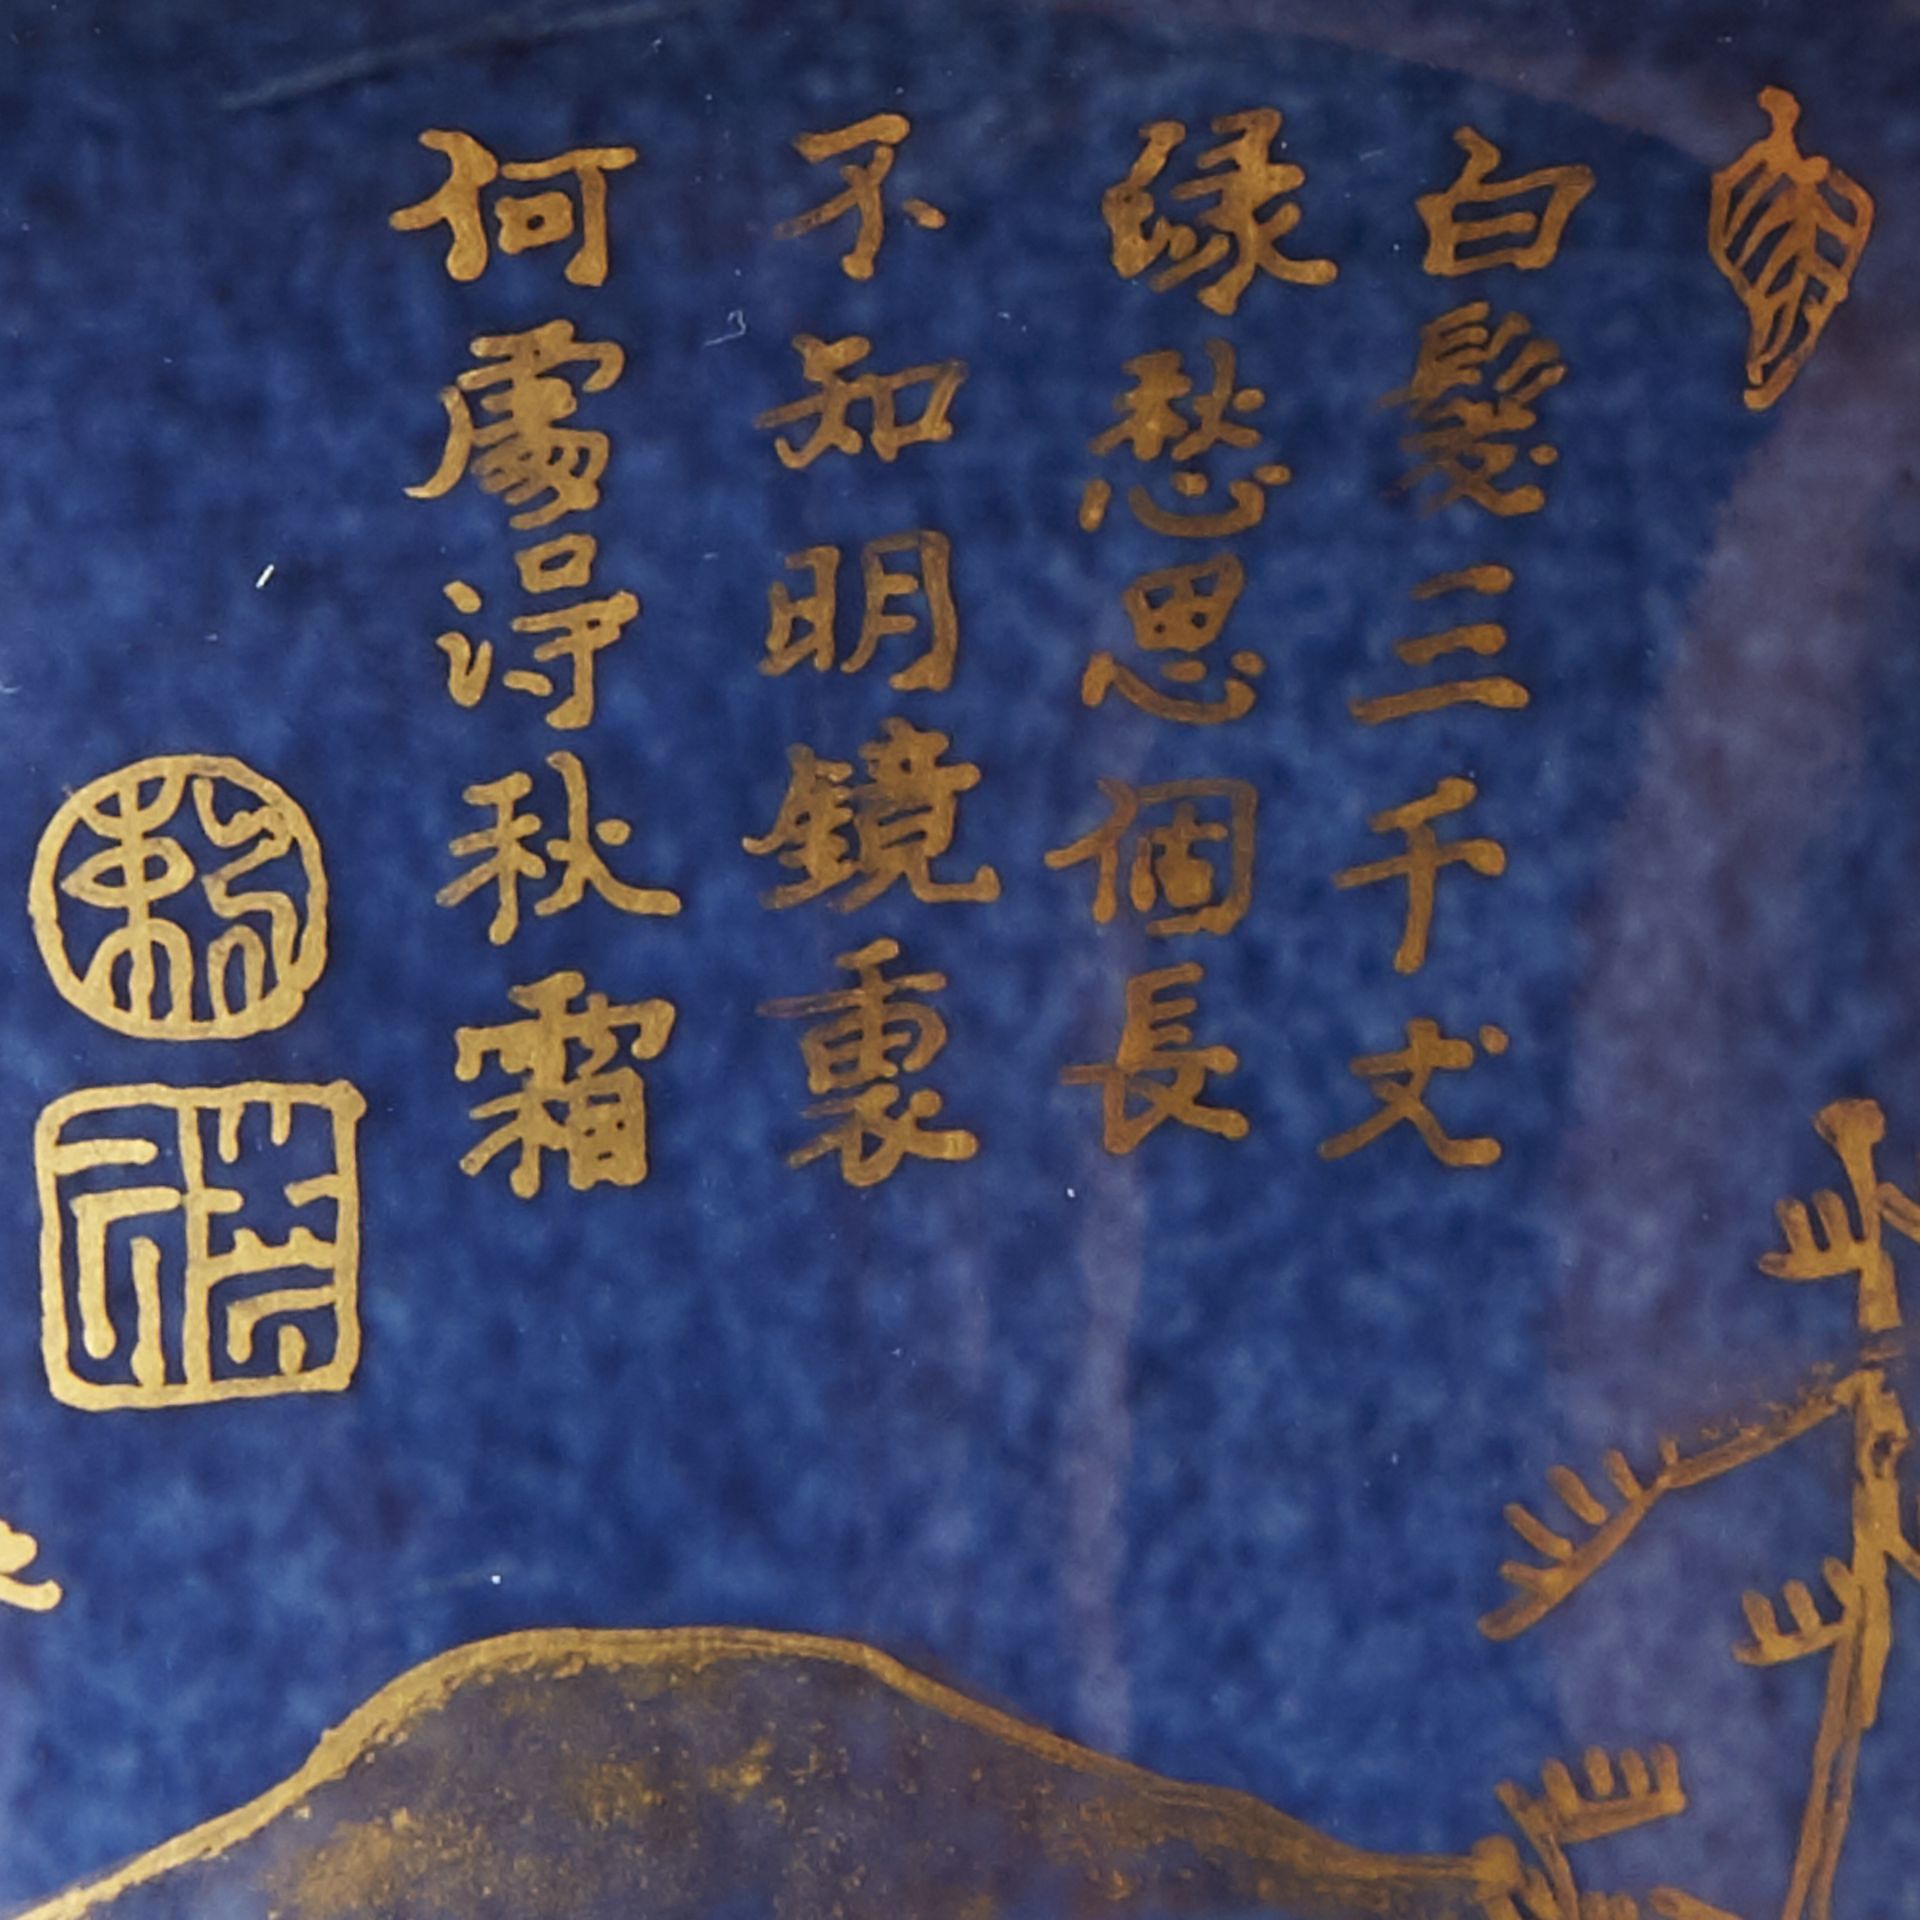 白髮三千丈
緣愁思個長
不知明鏡裏
何處得秋霜